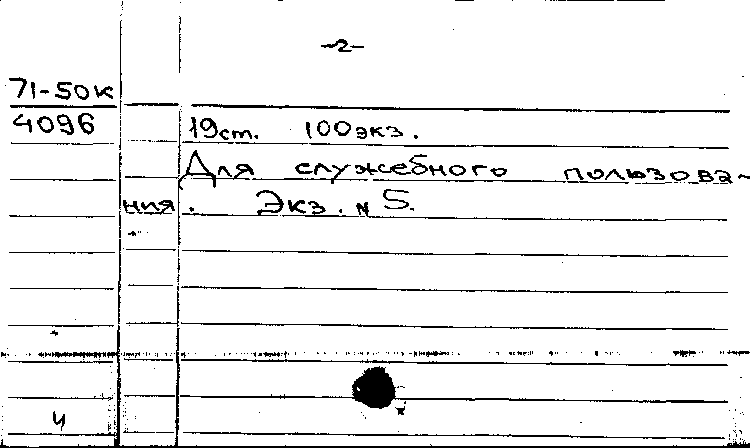 -2-
71-50к
4096 19ст. 100экз.
Для служебного пользова-
ния. Экз. № 5.
ч